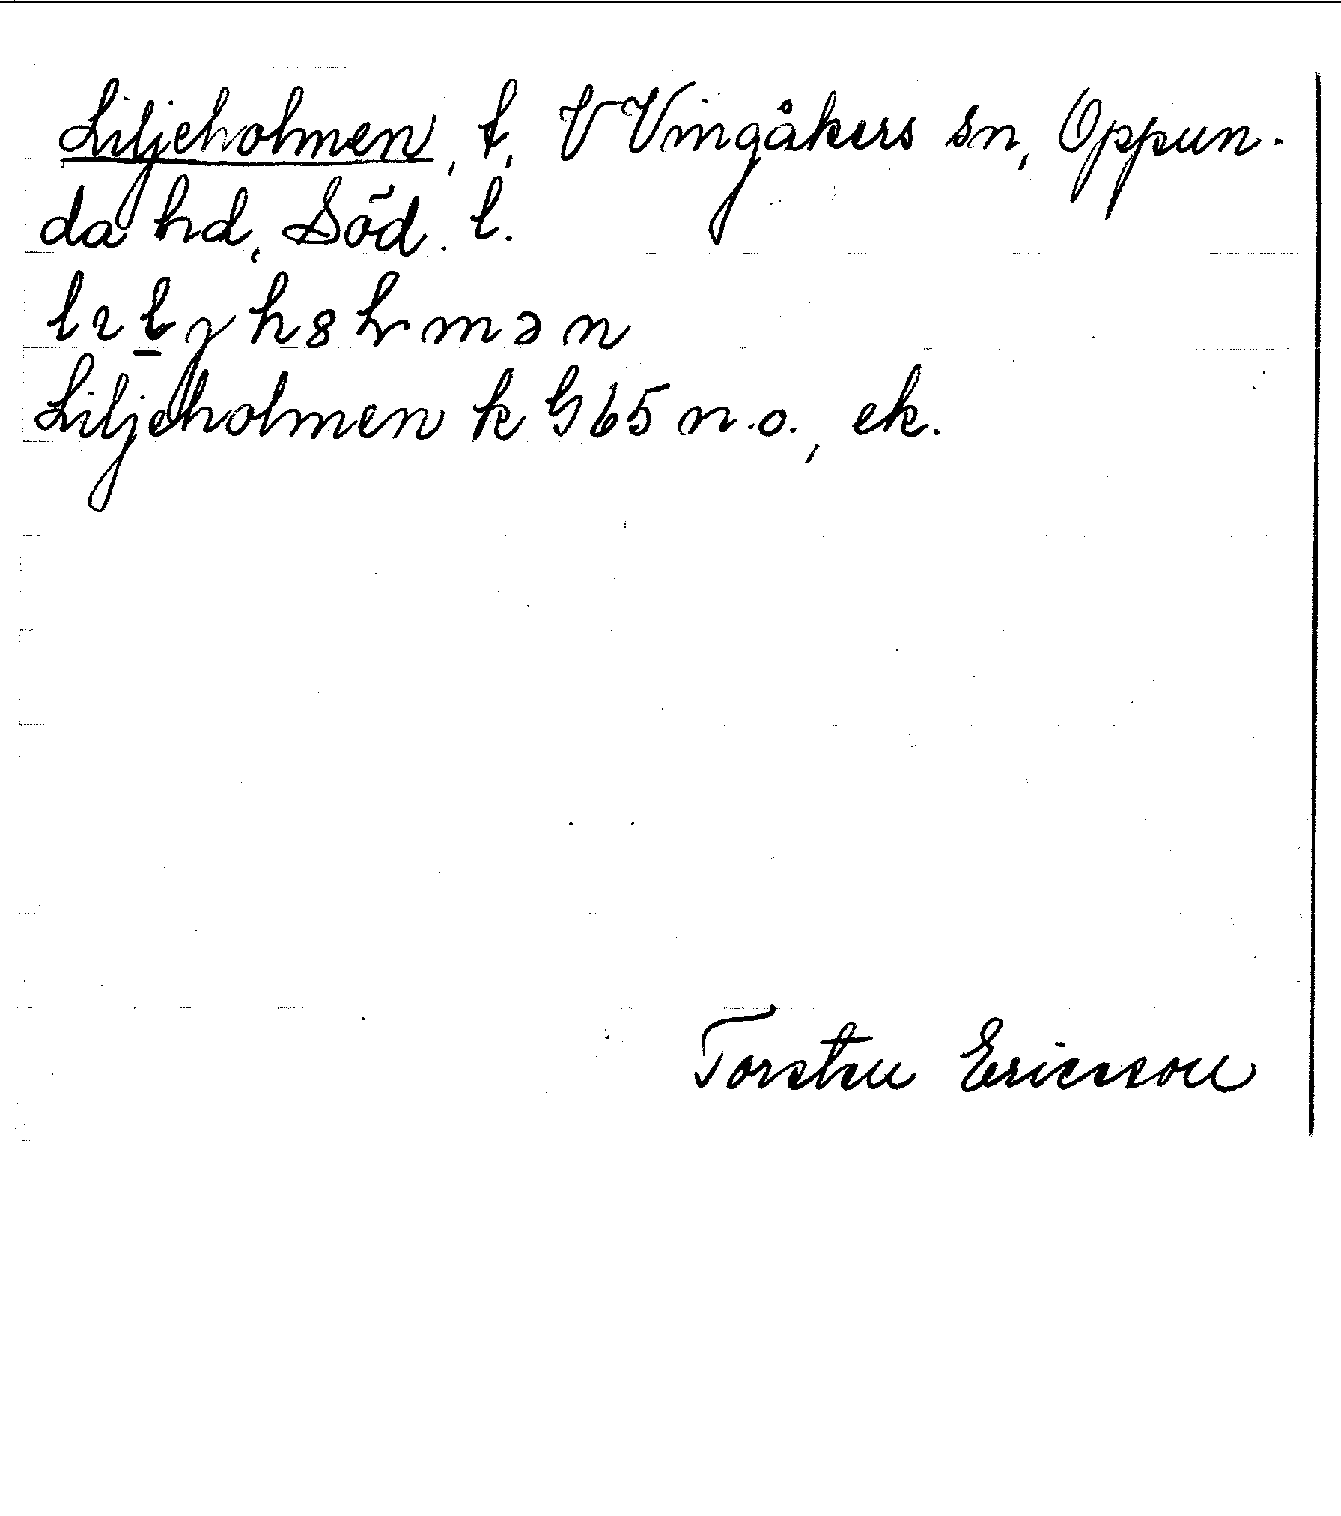 Liljeholmen, t, V Vingåkers sn, Oppun-
da hd, Söd. l.
Liljeholmen k G 65 n.o., ek.
Torsten Ericsson